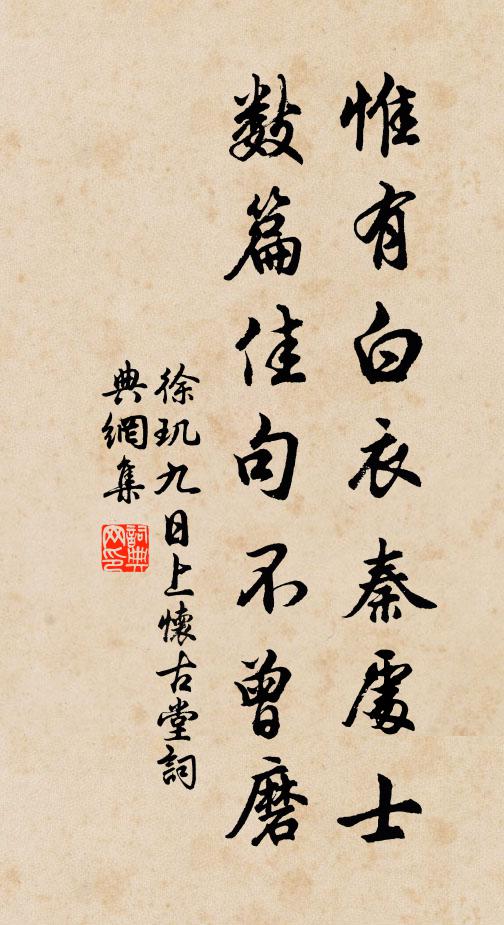 惟有白衣秦處士
數篇佳句不曾磨
徐玑九日上懷古堂詞
典網集
詞典
网印